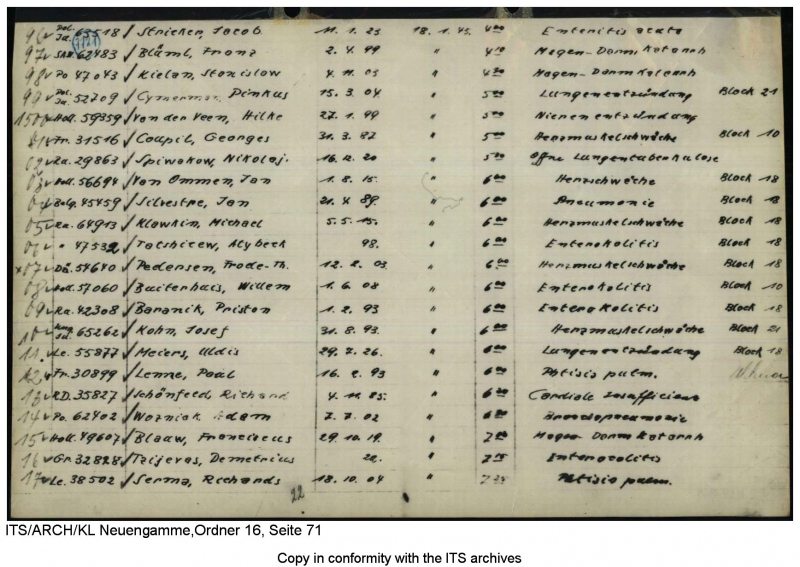 96 Pol. Ju. 65518 / Stricker, Jacob 11. 1. 23 18. 1. 45. 4 00 Enteritis acuta
97 62483 / Bläml, Franz 2. 4. 99 " 4 10 Magen-Darmkatarrh
98 Po 47043 / Kielan, Stanislaw 4. 11. 03 " 4 20 Magen-Darmkatarrh
99 Pol. Ju. 52709 / Pinkus 15. 3. 04 " 5 00 Lungenentzündung Block 21
Holl. 59359 / Van der Veen, Hilke 27. 1. 99 " 5 00 Nierenentzündung
01 Fr. 31516 / Coupil, Georges 31. 3. 87 " 5 00 Herzmuskelschwäche Block 10
02 Ra. 29863 / Spiwakow, Nikolaj. 16. 12. 20 " 5 00 Offne Lungentuberkulose
03 Holl. 56694 / Van Ommen, Jan 1. 8. 15. " 6 00 Herzschwäche Block 18
04 Belg. 45459 / Silvestre, Jan 21. 4. 89. " 6 00 Pneumonie Block 18
05 Ra. 64913 / Klowkin, Michael 5. 5. 15. " 6 00 Herzmuskelschwäche Block 18
06 " 47532 / Talshicew, Alybeck 98. " 6 00 Enterokolitis Block 18
x07 Dä. 54640 / Pedersen, Frode-Th. 12. 2. 03 " 6 00 Herzmuskelschwäche Block 18
08 Holl. 57060 / Buitenhuis, Willem 1. 6. 08 " 6 00 Enterokolitis Block 10
09 Ra. 42308 / Baranik, Priston 1. 2. 93 " 6 00 Enterokolitis Block 18
10 65262 / Kohn, Josef 31. 8. 93. " 6 00 Herzmuskelschwäche Block 21
11. Le. 55877 / Meiers, Uldis 29. 7. 26. " 6 00 Lungenentzündung Block 18
12 Fr. 30899 / Lenne, Paul 16. 2. 93 " 6 00 Phtisis pulm.
13 RD. 35827 / Schönfeld, Richard 4. 11. 85. " 6 00 Cardiale Insufficiens
14 Po. 62402 / Wozniak, Adam 7. 7. 02 " 6 00 Bronchopneumonie
15 Holl. 49607 / Blaauw, Franciscus 29. 10. 19. " 7 00 Magen-Darmkatarrh
16 Gr. 32828 / Tzijevas, Demetrius 22. " 7 15 Enterocolitis
17 Le. 38502 / Serma, Richards 18. 10. 04 " 7 35 Phtisis pulm.
22
ITS/ARCH/KL Neuengamme,Ordner 16, Seite 71
Copy in conformity with the ITS archives